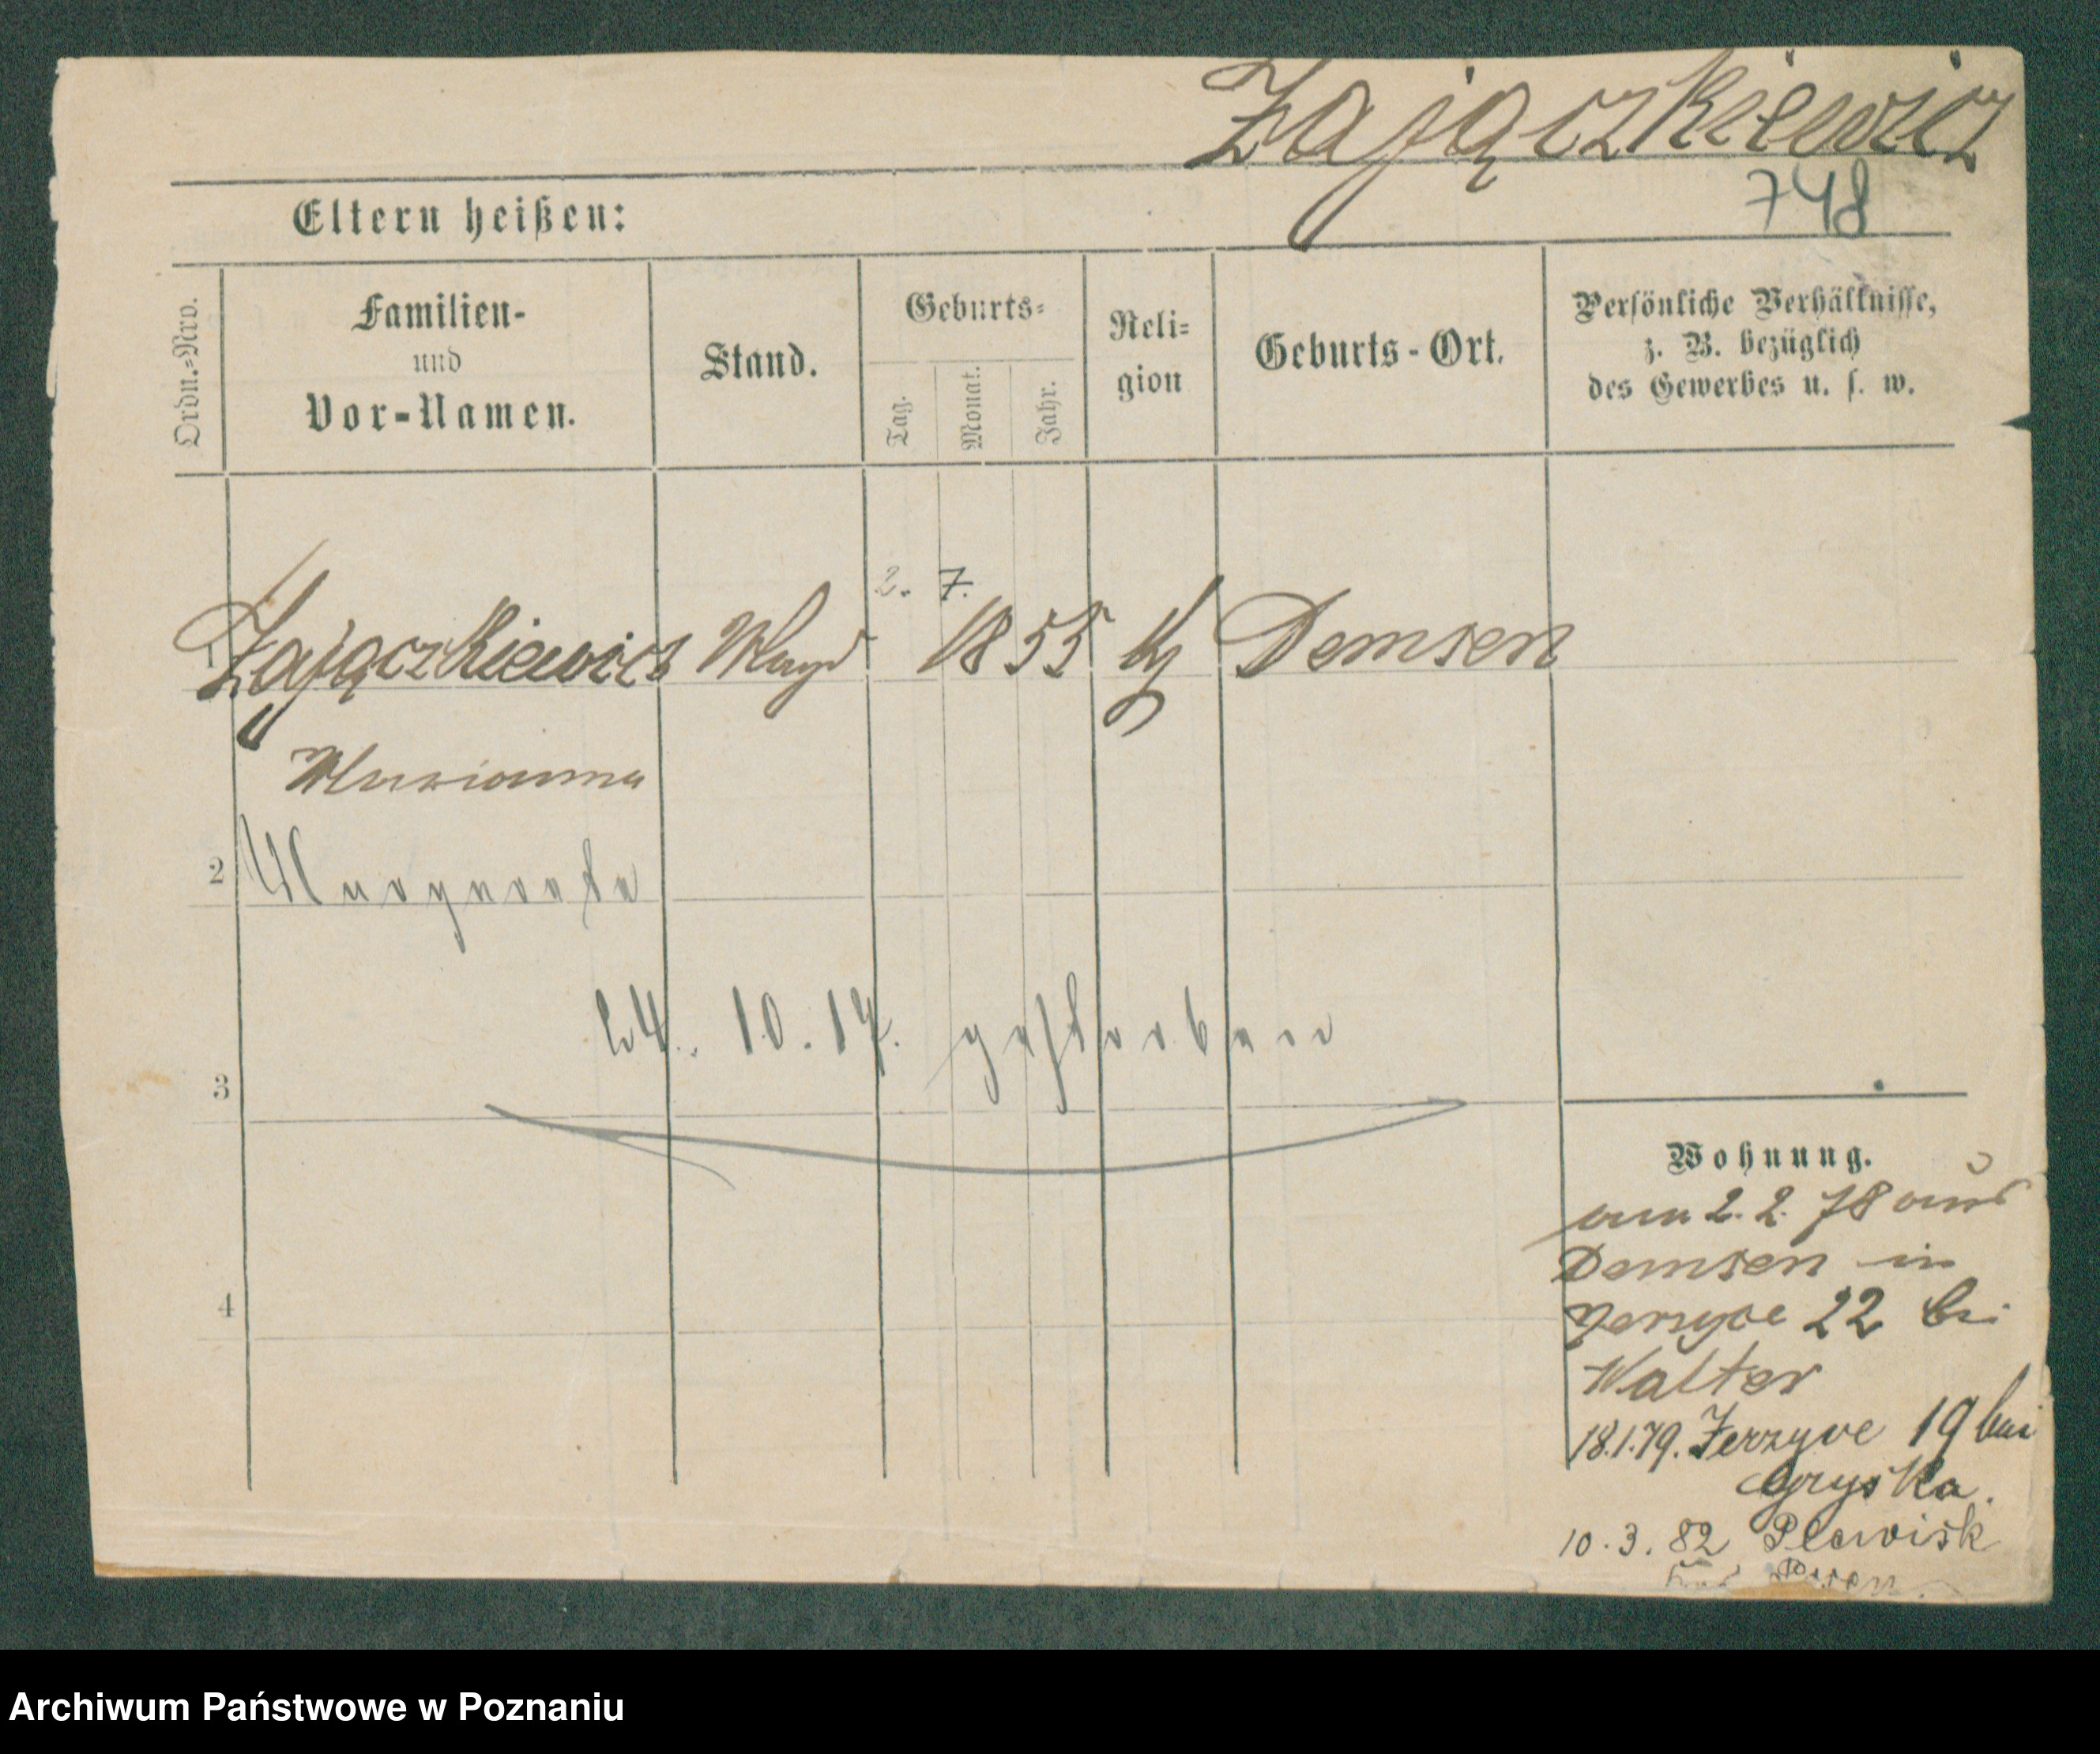 Zajączkiewicz
748
Eltern heißen:
Ordn.=Nro.
Familien-
und
Vor-Namen.
Stand.
Geburts=
Tag.
Monat.
Jahr.
Reli=
gion
Geburts-Ort.
Persönliche Verhältnisse,
z. B. bezüglich
des Gewerbes u. s. w.
2. 7.
1 Zajączkiewicz Magd 1855 Demsen
Marianna
2 Margareta
24. 10. 14. gestorben
3
4
Wohnung.
am 2. 2. 78 aus
Demsen in
Jerzyce 22 bei
Walter
18.1.79. Jerzyce 19 bei
Gryska.
10. 3. 82 Plewisk
Posen.